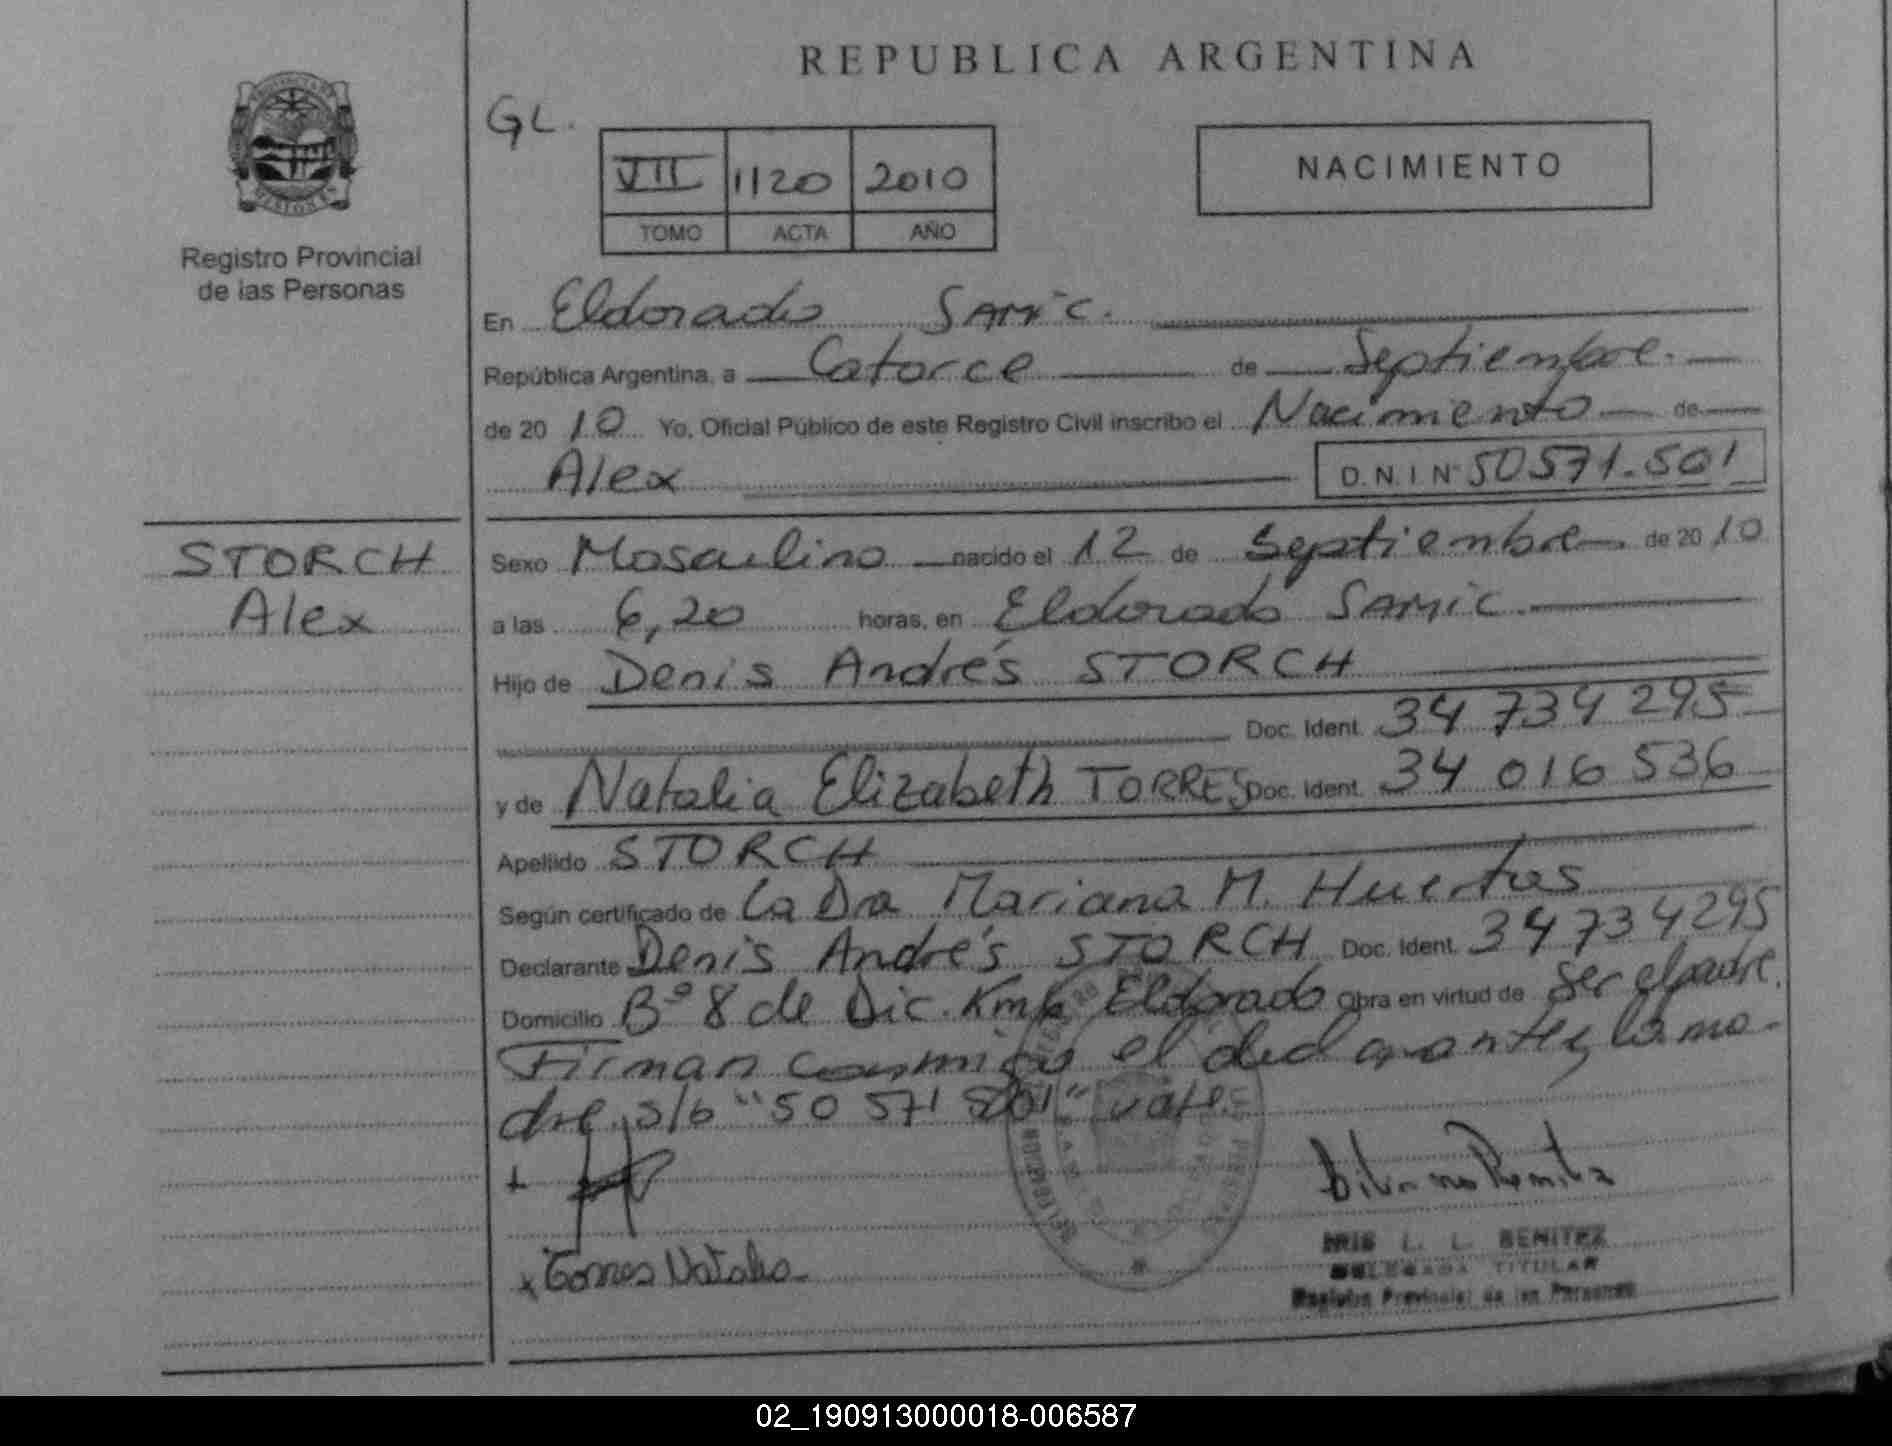 REPUBLICA ARGENTINA
GL.
VII 1120 2010
TOMO ACTA AÑO
NACIMIENTO
PROVINCIA DE MISIONES
Registro Provincial
de las Personas
En Eldorado SAMiC.
República Argentina, a Catorce de Septiembre.
de 20 10 Yo, Oficial Público de este Registro Civil inscribo el Nacimiento de
Alex D.N.I Nº 50571.501
STORCH
Alex
Sexo Masculino nacido el 12 de Septiembre de 20 10
a las 6,20 horas, en Eldorado SAMiC.
Hijo de Denis Andrés STORCH
Doc. Ident. 34 734 295
y de Natalia Elizabeth TORRES Doc. Ident. 34 016 536
Apellido STORCH
Según certificado de La Dra Mariana M. Huertas
Declarante Denis Andrés STORCH Doc. Ident. 34734295
Domicilio Bº 8 de Dic. Km Eldorado Obra en virtud de ser el padre.
Firman conmigo el declarante y la ma-
dre. s/b "50 571 501" vale.
Torres Natalia
IRIS L. L. BENITEZ
DELEGADA TITULAR
Registro Provincial de las Personas
02_190913000018-006587